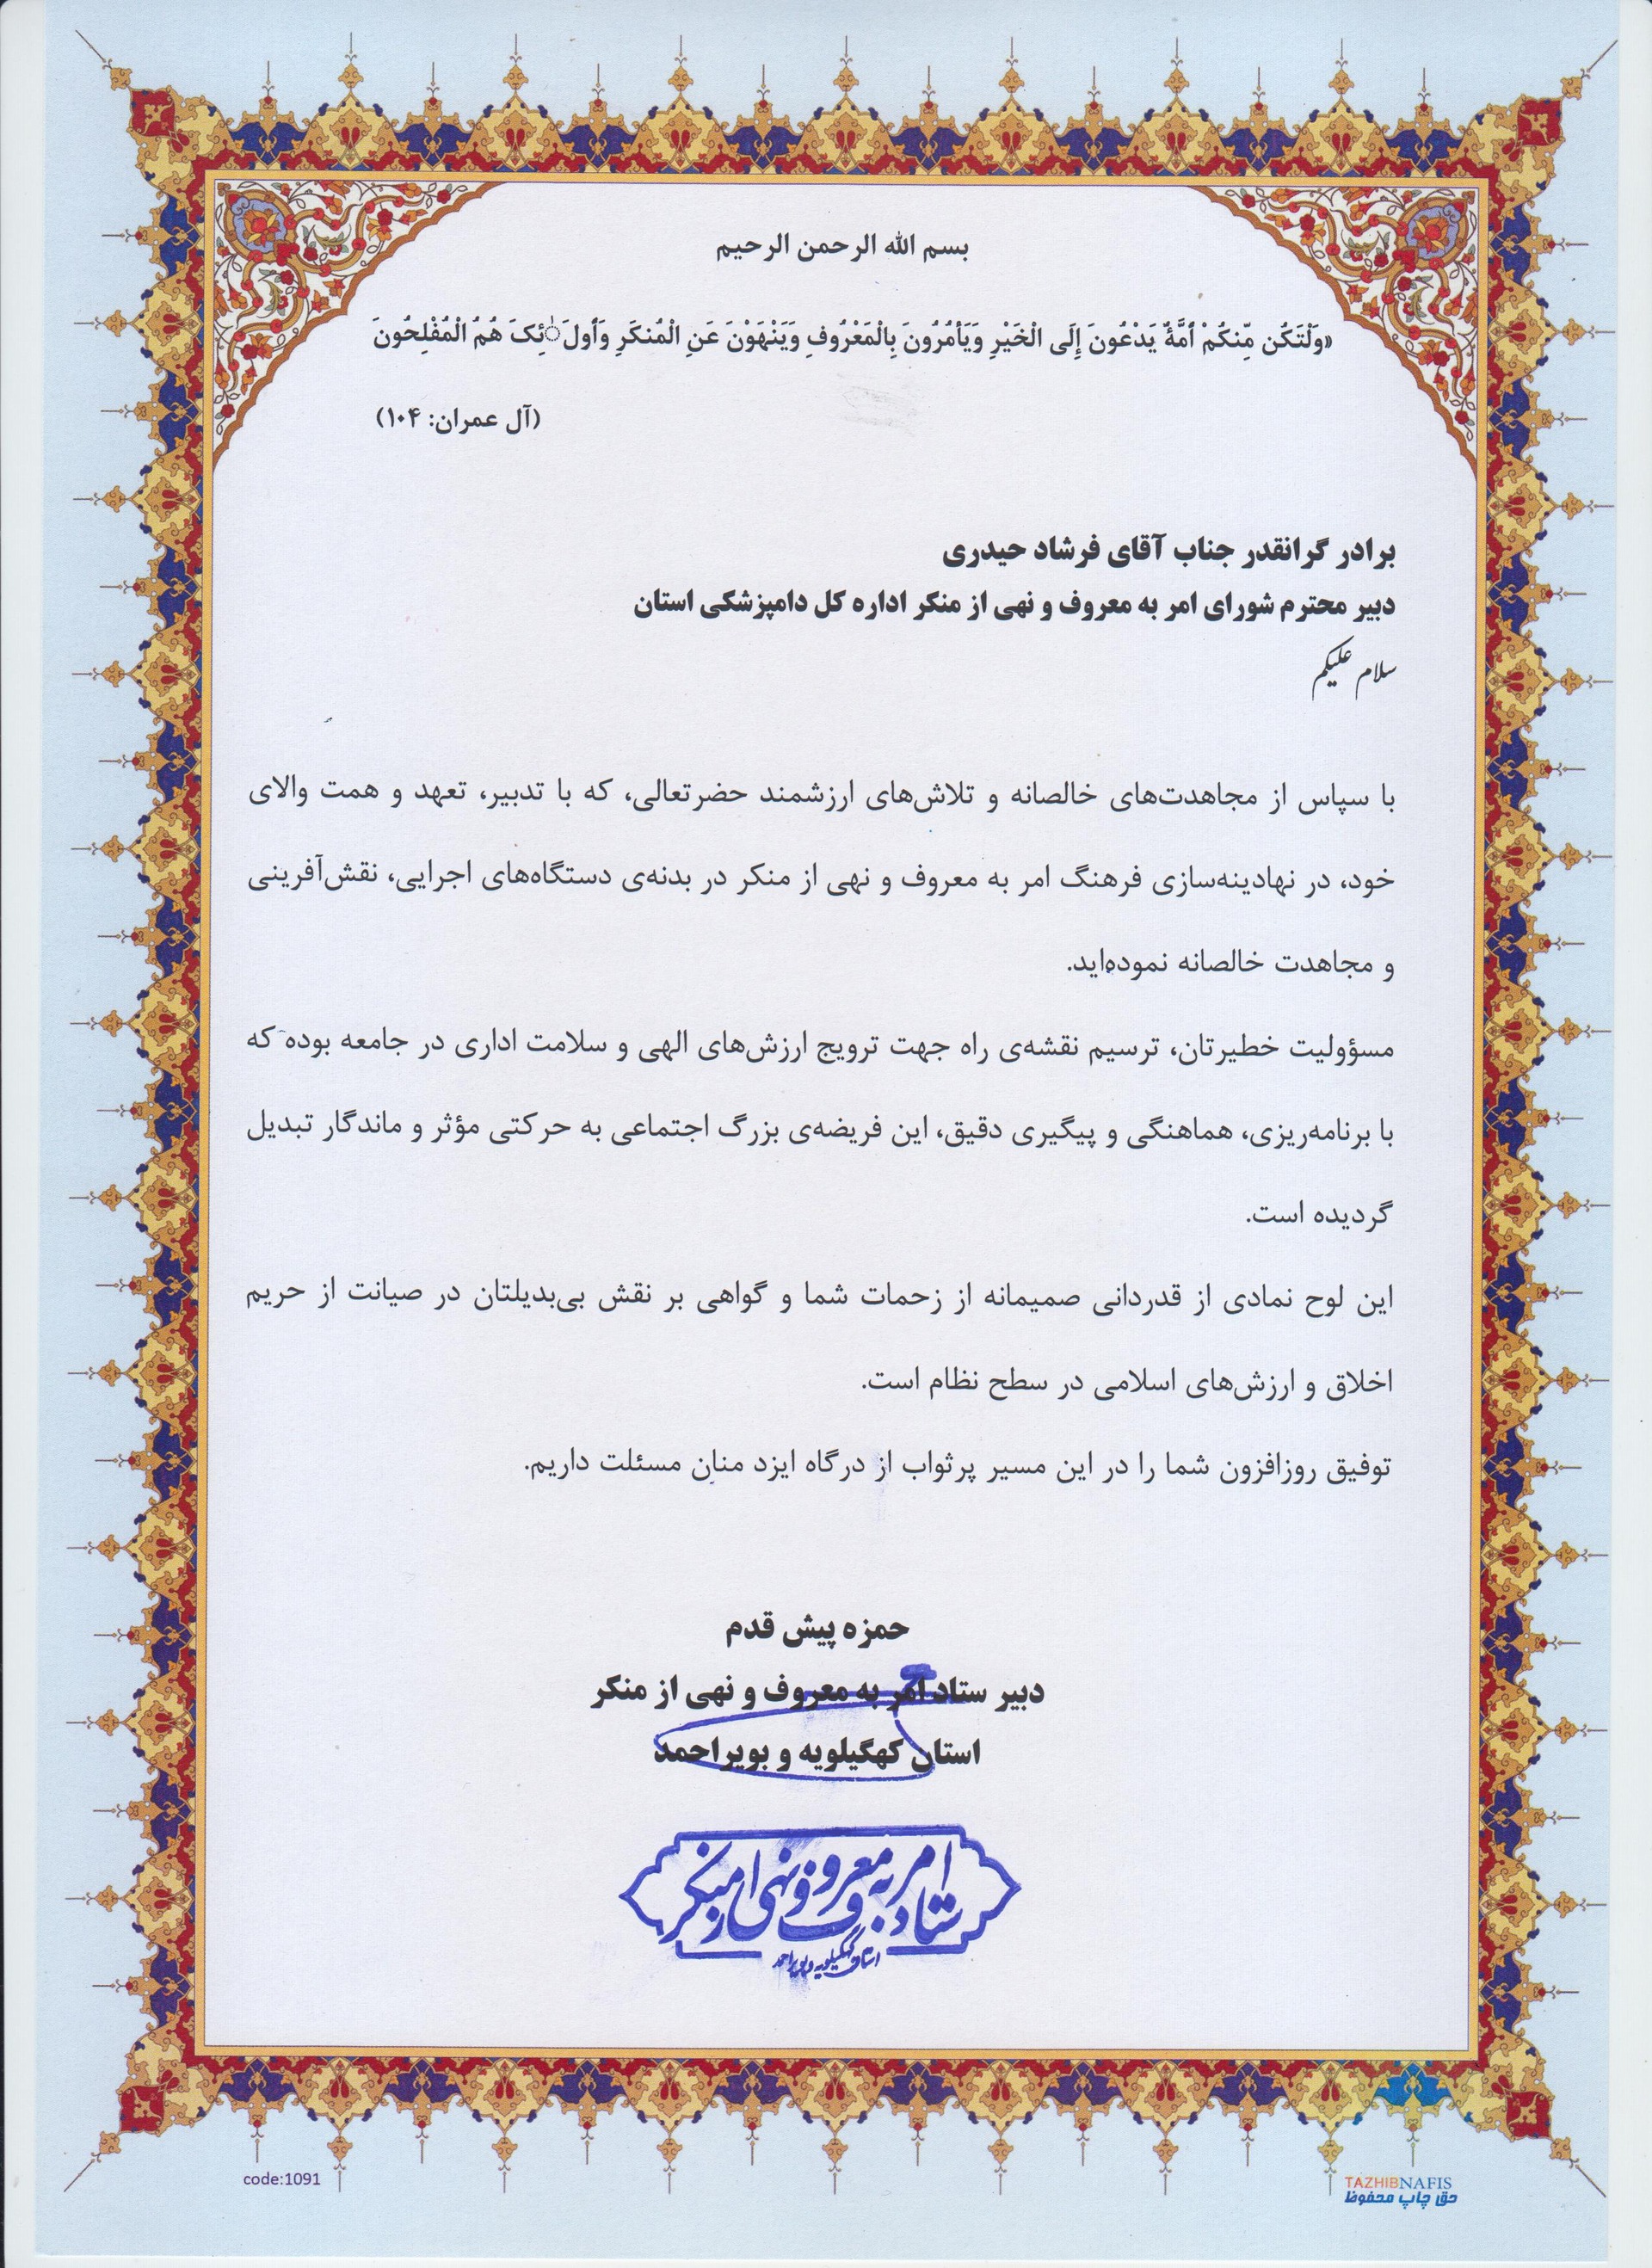 بسم الله الرحمن الرحیم
«وَلْتَكُن مِّنكُمْ أُمَّةٌ يَدْعُونَ إِلَى الْخَيْرِ وَيَأْمُرُونَ بِالْمَعْرُوفِ وَيَنْهَوْنَ عَنِ الْمُنكَرِ وَأُولَٰئِكَ هُمُ الْمُفْلِحُونَ
(آل عمران: ۱۰۴)
برادر گرانقدر جناب آقای فرشاد حیدری
دبیر محترم شورای امر به معروف و نهی از منکر اداره کل دامپزشکی استان
سلام علیکم
با سپاس از مجاهدت‌های خالصانه و تلاش‌های ارزشمند حضرتعالی، که با تدبیر، تعهد و همت والای
خود، در نهادینه‌سازی فرهنگ امر به معروف و نهی از منکر در بدنه‌ی دستگاه‌های اجرایی، نقش‌آفرینی
و مجاهدت خالصانه نموده‌اید.
مسؤولیت خطیرتان، ترسیم نقشه‌ی راه جهت ترویج ارزش‌های الهی و سلامت اداری در جامعه بوده که
با برنامه‌ریزی، هماهنگی و پیگیری دقیق، این فریضه‌ی بزرگ اجتماعی به حرکتی مؤثر و ماندگار تبدیل
گردیده است.
این لوح نمادی از قدردانی صمیمانه از زحمات شما و گواهی بر نقش بی‌بدیلتان در صیانت از حریم
اخلاق و ارزش‌های اسلامی در سطح نظام است.
توفیق روزافزون شما را در این مسیر پرثواب از درگاه ایزد منان مسئلت داریم.
حمزه پیش قدم
دبیر ستاد امر به معروف و نهی از منکر
استان کهگیلویه و بویراحمد
ستاد امر به معروف و نهی از منکر
استان کهگیلویه و بویراحمد
code:1091
TAZHIBNAFIS
حق چاپ محفوظ